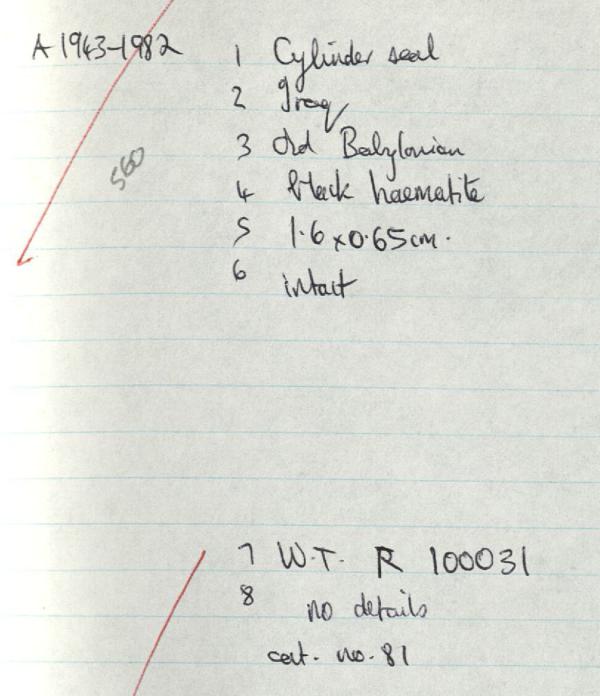 A 1943-1982 1 Cylinder seal
2 Iraq
3 Old Babylonian
4 black haematite
560
5 1.6 x 0.65cm.
6 intact
7 W.T. R 100031
8 no details
cat. no. 81